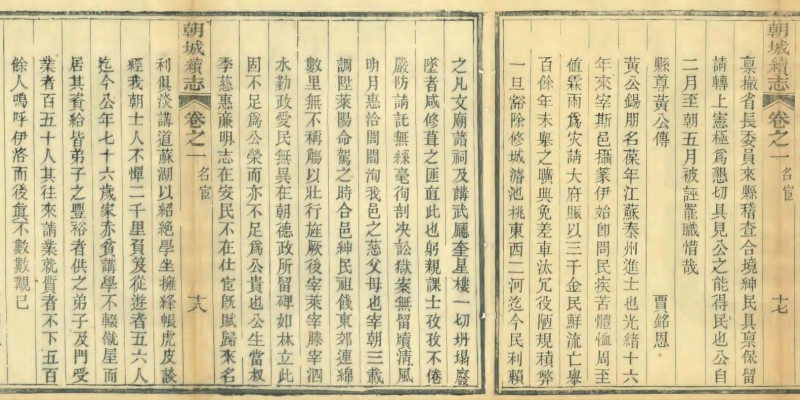 稟撤省長委員來縣稽查合境紳民具稟保留
請轉上憲極爲懇切具見公之能得民也公自
二月至朝五月被誣罷職惜哉
縣尊黃公傳
賈銘恩
黃公錫朋名葆年江蘇泰州進士也光緒十六
年來宰斯邑攝篆伊始卽問民疾苦體恤周至
値霖雨爲災請大府賑以三千金民鮮流亡舉
百餘年未舉之曠典免差車汰冗役陋規積弊
一旦豁除修城濬池挑東西二河迄今民利賴
朝城續志
卷之一
名宦
十七
之凡文廟諸祠及講武廳奎星樓一切坍塌廢
墜者咸修葺之匪直此也躬親課士孜孜不倦
嚴防請託無絲毫徇剖決訟獄案無留牘清風
明月惠洽閭閻洵我邑之慈父母也宰朝三載
調陞萊陽命駕之時合邑紳民祖餞東郊連綿
數里無不稱觴以壯行旌厥後宰萊宰滕宰泗
水勤政愛民無異在朝德政所留碑如林立此
固不足爲公榮而亦不足爲公貴也公生當叔
季慈惠廉明志在安民不在仕宦旣賦歸來名
朝城續志
卷之一
名宦
十八
利俱淡講道蘇湖以紹絕學坐擁絳帳虎皮談
經我朝士人不憚二千里負笈從遊者五六人
迄今公年七十六歲家亦貧講學不輟僦屋而
居其資給皆弟子之豐裕者供之弟子及門受
業者百五十人其往來請業就質者不下五百
餘人嗚呼伊洛而後眞不數數覯已